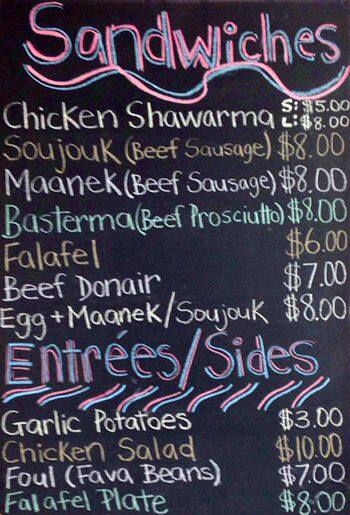 Sandwiches
Chicken Shawarma S: $5.00
L: $8.00
Soujouk (Beef Sausage) $8.00
Maanek (Beef Sausage) $8.00
Basterma (Beef Prosciutto) $8.00
Falafel $6.00
Beef Donair $7.00
Egg + Maanek/Soujouk $8.00
Entrées/Sides
Garlic Potatoes $3.00
Chicken Salad $10.00
Foul (Fava Beans) $7.00
Falafel Plate $8.00